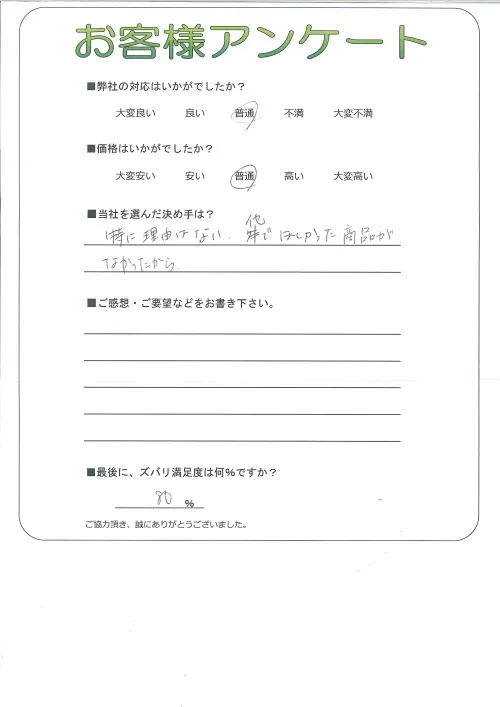 お客様アンケート
■弊社の対応はいかがでしたか?
大変良い 良い 普通 不満 大変不満
■価格はいかがでしたか?
大変安い 安い 普通 高い 大変高い
■当社を選んだ決め手は?
特に理由はない. 他で ほしかった商品が
なかったから.
■ご感想・ご要望などをお書き下さい。
■最後に、ズバリ満足度は何%ですか?
80 %
ご協力頂き、誠にありがとうございました。